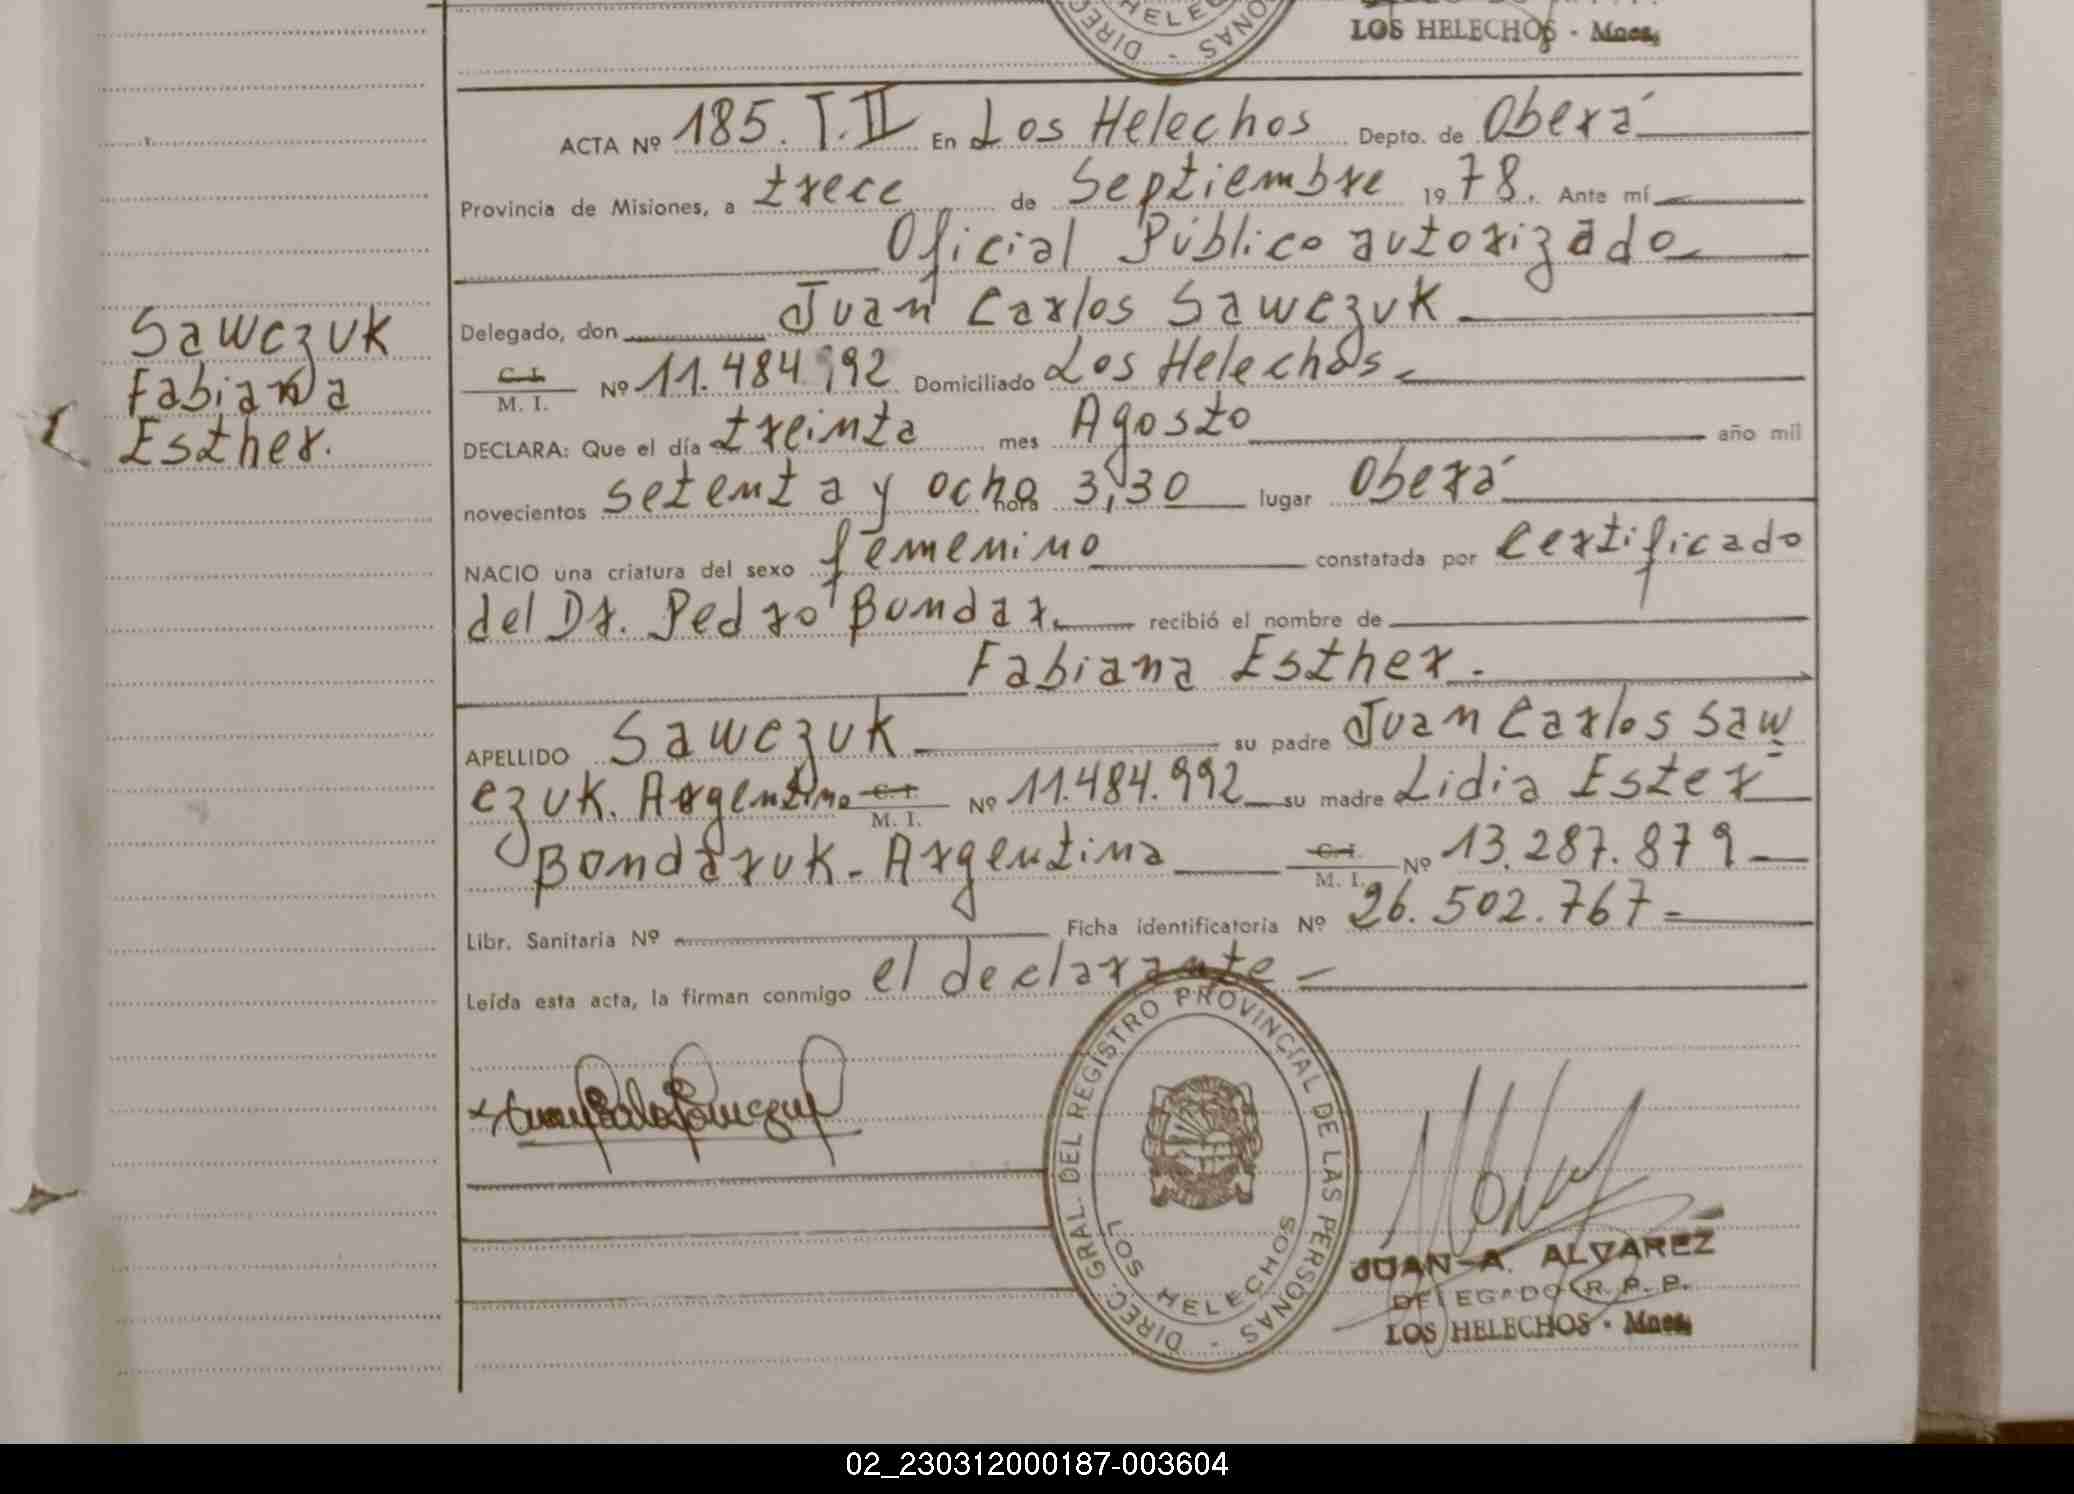 DIREC. HELEC ONAS
LOS HELECHOS - Mnes.
ACTA Nº 185. T. II En Los Helechos Depto. de Oberá
Provincia de Misiones, a trece de Septiembre 1978. Ante mí
Oficial Público autorizado
Delegado, don Juan Carlos Sawczuk
C. I. M. I. Nº 11.484.992 Domiciliado Los Helechos.
DECLARA: Que el día treinta mes Agosto año mil
novecientos setenta y ocho hora 3,30 lugar Oberá
NACIO una criatura del sexo femenino constatada por Certificado
del Dr. Pedro Bondar. recibió el nombre de
Fabiana Esther.
APELLIDO Sawczuk su padre Juan Carlos Saw
czuk. Argentino C. I. M. I. Nº 11.484.992 su madre Lidia Ester
Bondaruk - Argentina C. I. M. I. Nº 13.287.879
Libr. Sanitaria Nº Ficha identificatoria Nº 26.502.767
Leída esta acta, la firman conmigo el declarante
Sawczuk
Fabiana
Esther.
DIREC. GRAL. DEL REGISTRO PROVINCIAL DE LAS PERSONAS -
LOS HELECHOS
JUAN A. ALVAREZ
DELEGADO R. P. P.
LOS HELECHOS - Mnes.
02_230312000187-003604